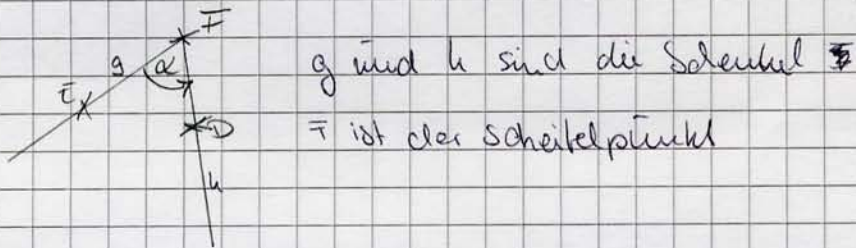 F
g α
E
D
h
g und h sind die Schenkel
F ist der Scheitelpunkt